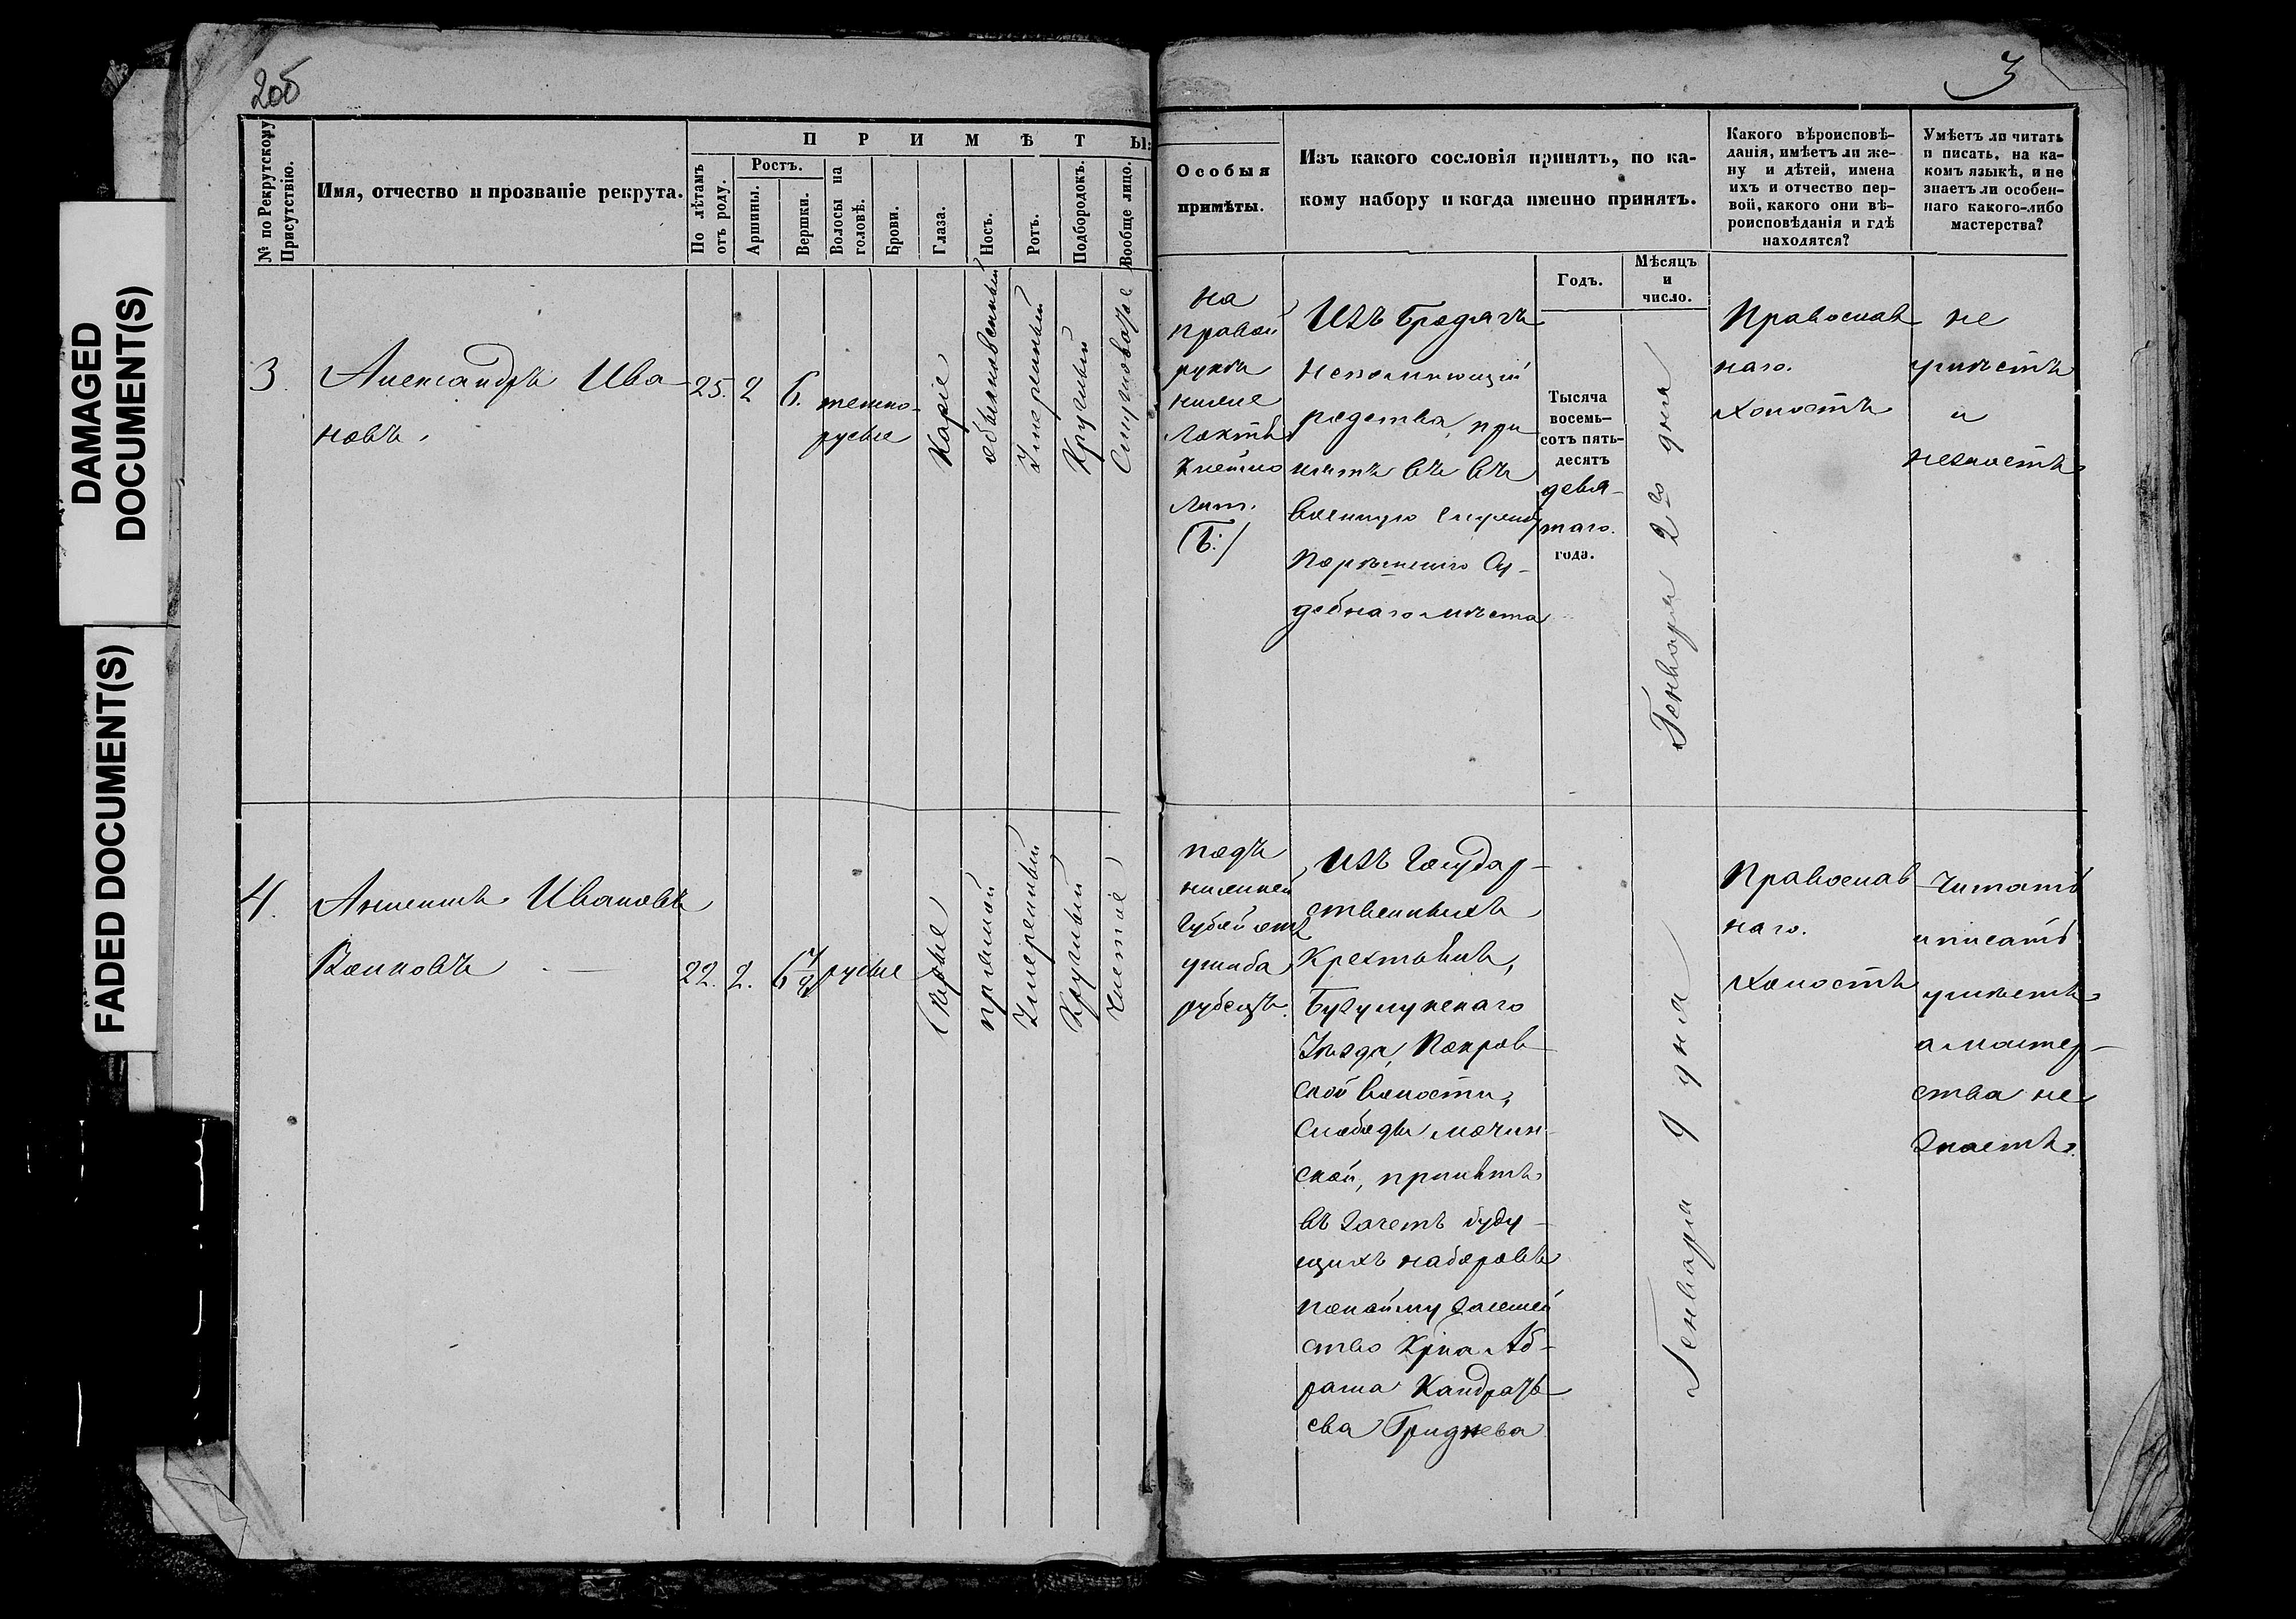 DAMAGED
DOCUMENT(S)
FADED DOCUMENT(S)
2об
3
№ по Рекрутскому
Присутствію.
Имя, отчество и прозваніе рекрута.
ПРИМѢТЫ:
По лѣтамъ
отъ роду.
Ростъ.
Аршины.
Вершки.
Волосы на
головѣ.
Брови.
Глаза.
Носъ.
Ротъ.
Подбородокъ.
Вообще лицо.
Особыя
примѣты.
Изъ какого сословія принятъ, по ка-
кому набору и когда именно принятъ.
Какого вѣроисповѣ-
данія, имѣетъ ли же-
ну и дѣтей, имена
ихъ и отчество пер-
вой, какого они вѣ-
роисповѣданія и гдѣ
находятся?
Умѣетъ ли читать
и писать, на ка-
комъ языкѣ, и не
знаетъ ли особен-
наго какого-либо
мастерства?
Годъ.
Мѣсяцъ
и
число.
3.
Александръ Ива
новъ.
25.
2
6.
темно-
русые
Каріе
обыкновенный
Умеренный
Круглый
Смугловатое
на
правой
рукѣ
ниже
локтя
клеймо
лит.
(Б:)
Изъ бродягъ
непомнющій
родства, при
нятъ въ въ
военную службу
по решенію Су-
дебнаго места
Тысяча
восемь-
сотъ пять-
десятъ
девя-
таго.
года.
Генваря 2го дня
Православ
наго.
Холостъ
не
умѣетъ
и
незнаетъ
4.
Ивановъ
Волковъ
22.
2.
6 7/8
русые
Серые
прямой
Умеренный
Круглый
Чистое
подъ
нижней
губой отъ
ушиба
рубецъ.
Изъ Государ-
ственныхъ
Крестьянъ,
Бугульминскаго
Уѣзда, Покров-
ской волости,
Слободы
ской, принятъ
въ зачетъ буду-
щихъ наборовъ
по найму за семей
ство Кр-на Аб-
рама Кандрать-
ева Гриднева
Генваря 9 дня
Православ
наго.
Холостъ
Читать
и писать
умѣетъ
а мастер-
ства не
знаетъ.